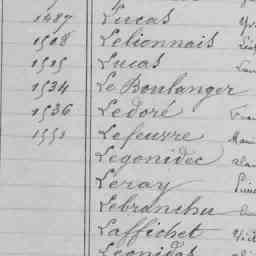 1487 Lucas
1508 Lelionnais
1515 Lucas
1534 Le Boulanger
1536 Ledoré
1551 Lefeuvre
Legonidec
Leray
Lebranchu
Laffichet
Leonidas